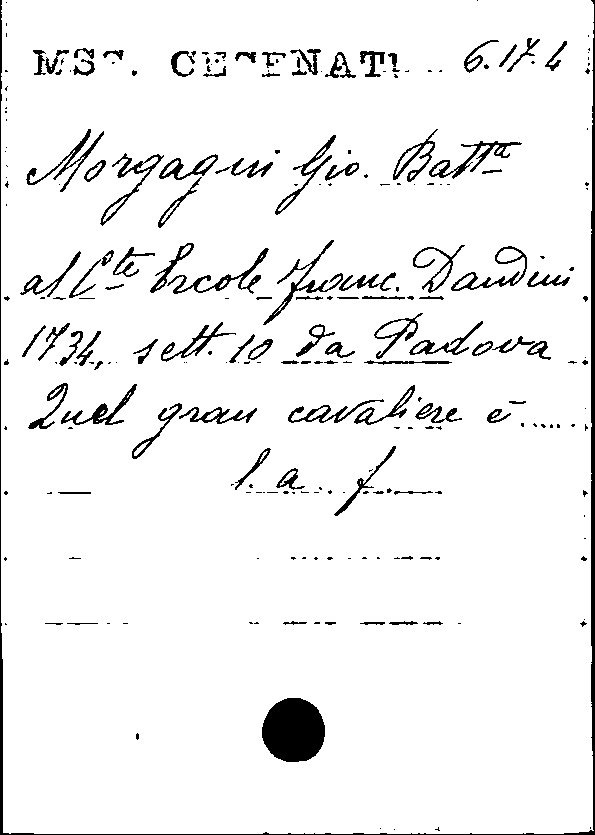 MSS. CESENATI 6.17.4
Morgagni Gio. Batta
al Cte Ercole Franc. Dandini
1734, sett. 10 da Padova
Quel gran cavaliere è......
l. a. f.